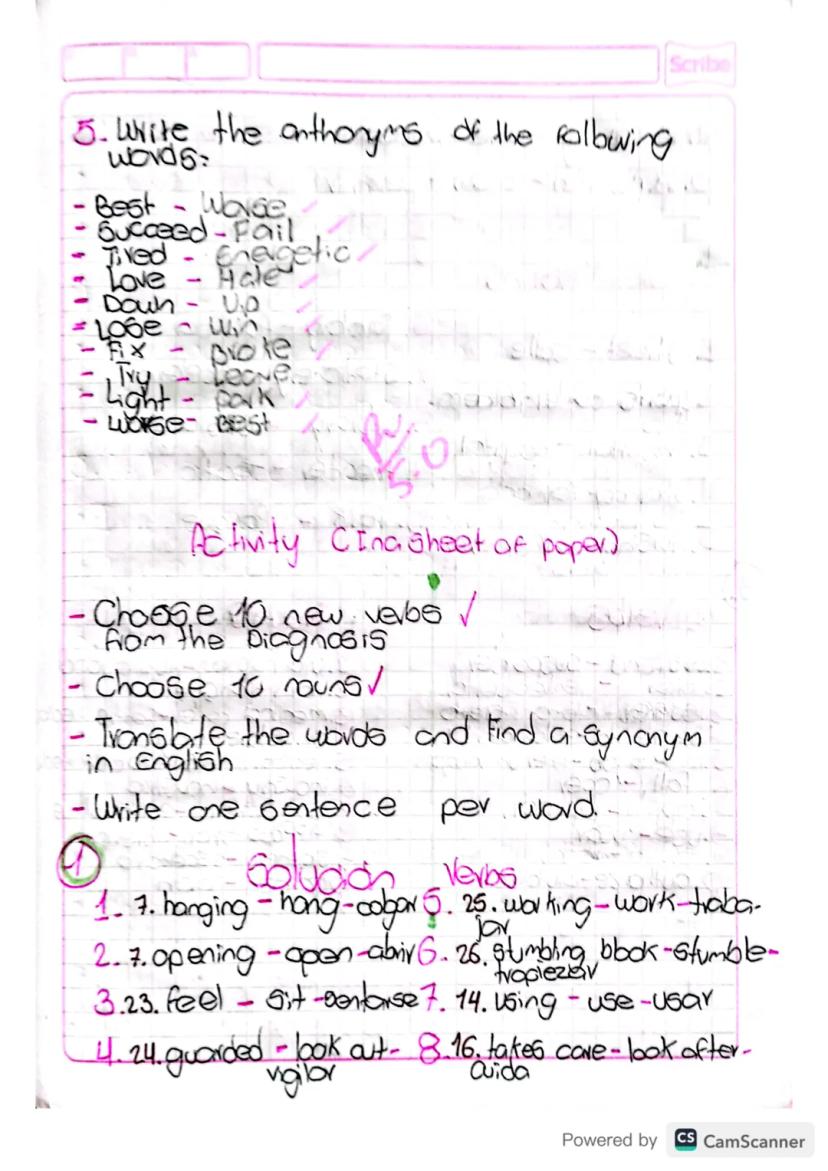 Scribe
5. Write the anthonyms of the following
words:
- Best - Worse
- Succeed - Fail
- Tired - Energetic
- Love - Hate
- Down - Up
- Lose - Win
- Fix - Broke
- Try - Leave
- Light - Dark
- Worse - Best
R/5.0
Activity (In a sheet of paper)
- Choose 10 new verbs ✓
from the Diagnosis
- Choose 10 nouns ✓
- Translate the words and find a synonym
in English
- Write one sentence per word.
1
Solución Verbs
1. 7. hanging - hang - colgar 5. 25. working - work - traba-
jar
2. 7. opening - open - abrir 6. 26. stumbling block - stumble -
tropiezar
3. 23. feel - sit - sentarse 7. 14. using - use - usar
4. 24. guarded - look out - 8. 16. takes care - look after -
vigilar cuida
Powered by CS CamScanner